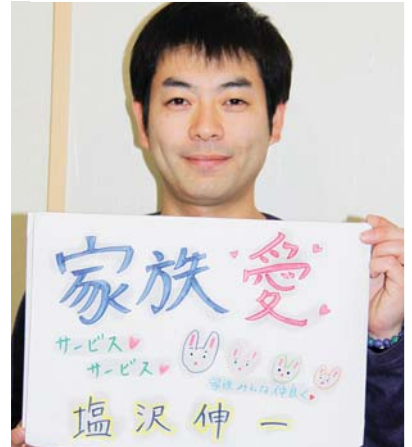 家族愛
サービス♥
サービス♥
家族みんな仲良く♥
塩沢伸一